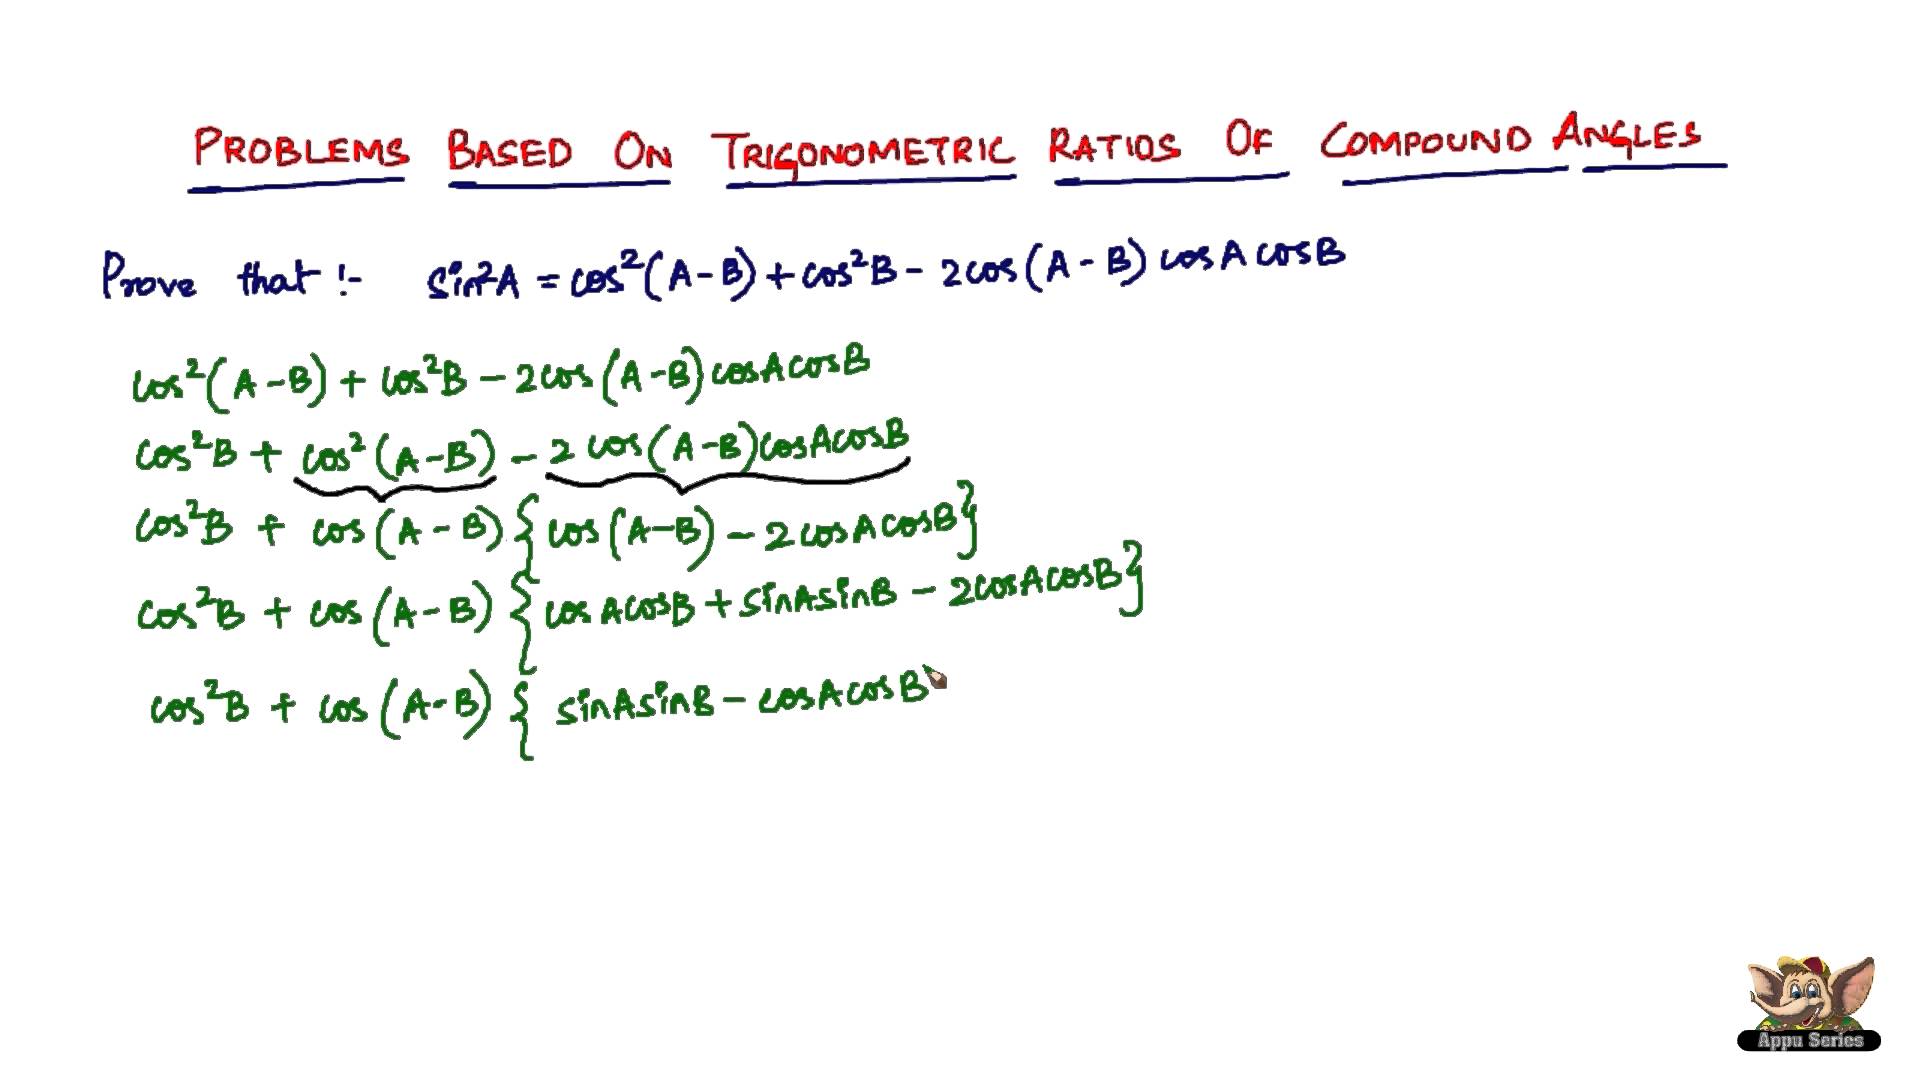 PROBLEMS BASED ON TRIGONOMETRIC RATIOS OF COMPOUND ANGLES
Prove that :- sin²A = cos²(A-B) + cos²B - 2cos(A-B) cosA cosB
cos²(A-B) + cos²B - 2cos(A-B) cosA cosB
cos²B + cos²(A-B) - 2 cos(A-B) cosA cosB
cos²B + cos(A-B) {cos(A-B) - 2cosA cosB}
cos²B + cos(A-B) {cosA cosB + sinA sinB - 2cosA cosB}
cos²B + cos(A-B) { sinA sinB - cosA cosB
Appu Series